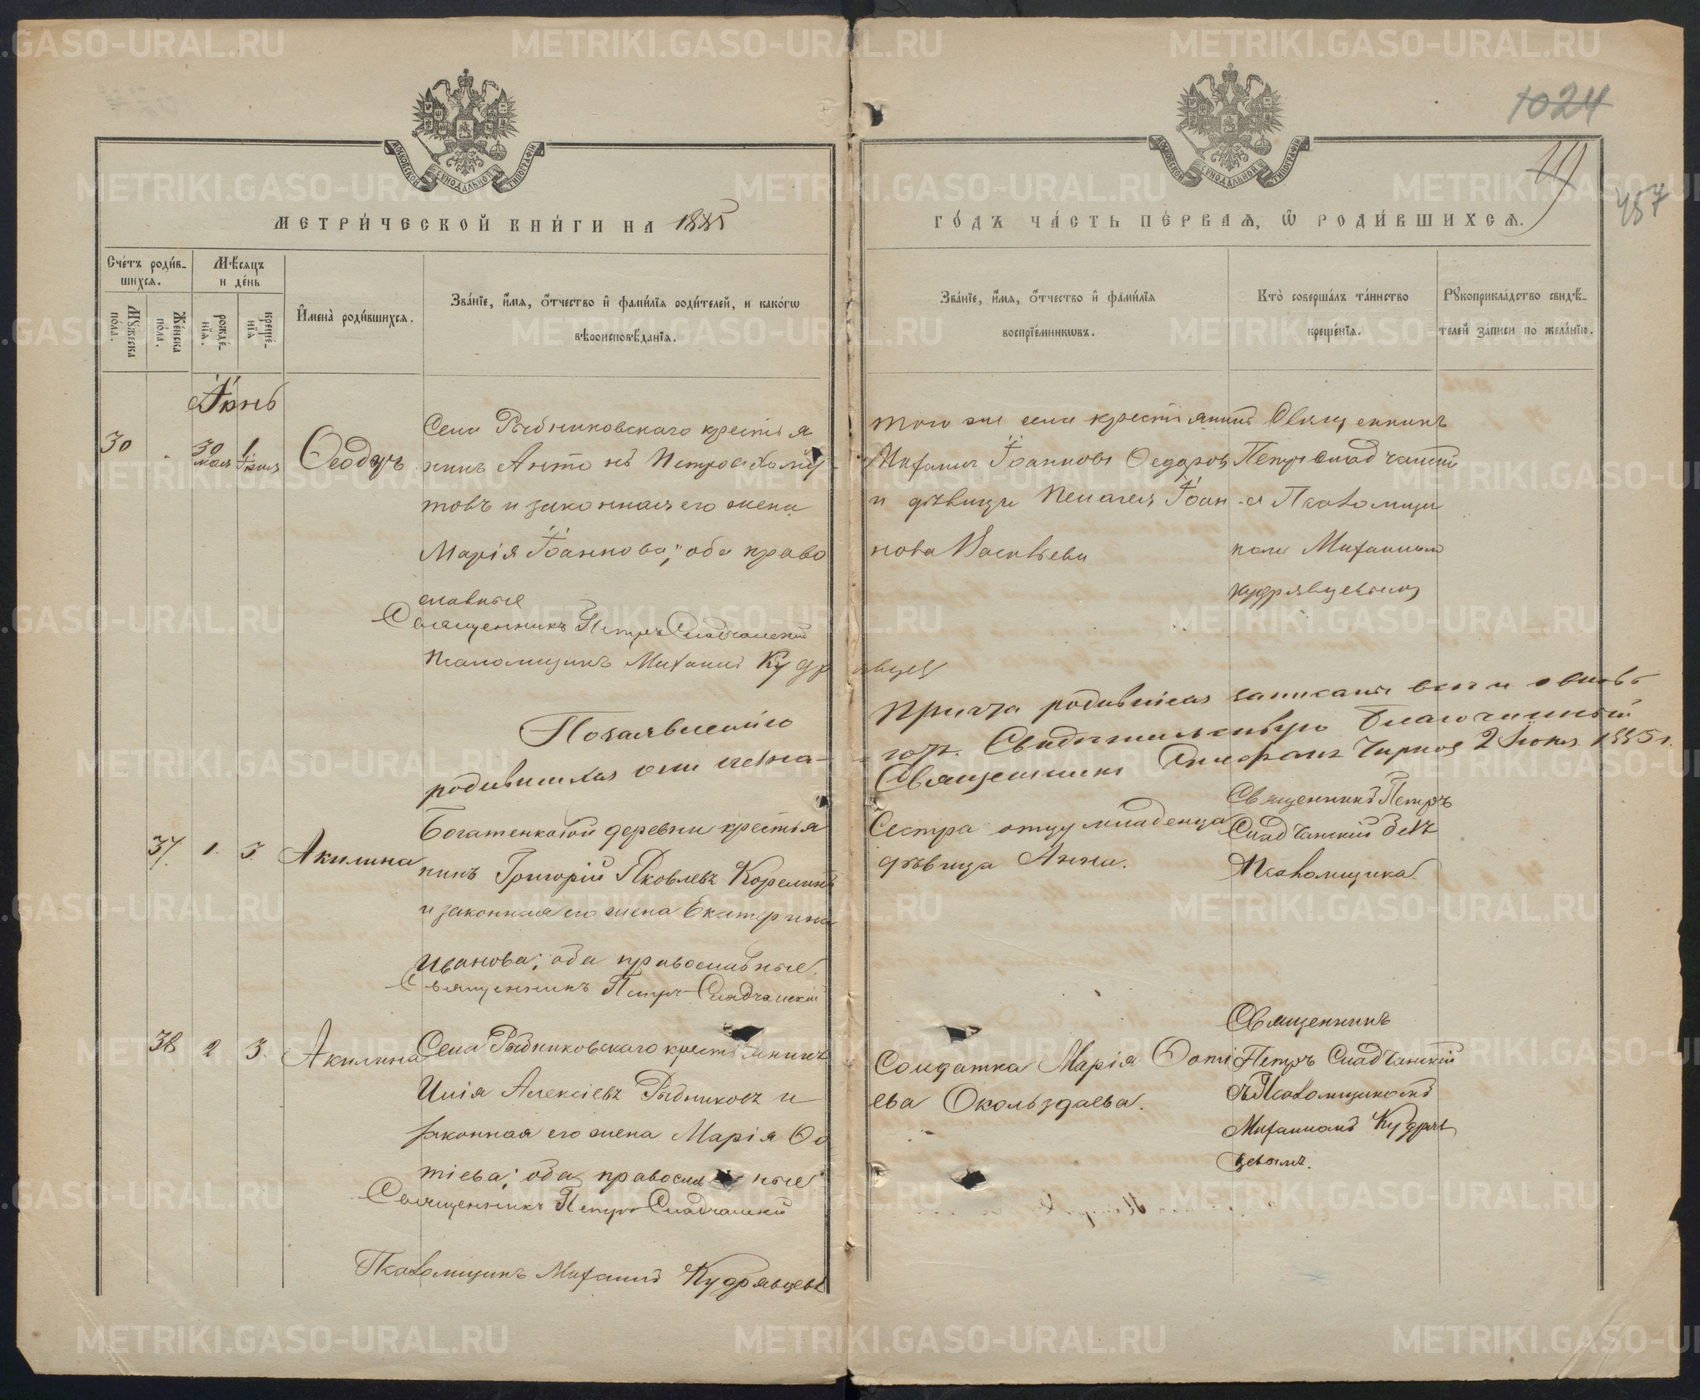 1024
457
МЕТРИ́ЧЕСКОЙ КНИ́ГИ НА 1885
ГО́ДЪ ЧА́СТЬ ПЕ́РВАѦ, Ѡ҆ РОДИ́ВШИХСѦ.
Сче́тъ роди́в-
шихсѧ.
Му́жеска по́ла.
Же́нска по́ла.
Мѣ́сѧцъ
и де́нь
рожде́-
нїѧ.
креще́-
нїѧ
И҆мена̀ роди́вшихсѧ.
Зва́нїе, и҆́мѧ, ѻ҆́тчество и҆ фами́лїѧ роди́телей, и како́гѡ
вѣроисповѣ́данїѧ.
Зва́нїе, и҆́мѧ, ѻ҆́тчество и҆ фами́лїѧ
воспрїе́мникѡвъ.
Кто̀ соверша́лъ та́инство
креще́нїѧ.
Рꙋкоприкла́дство свидѣ́-
телей за́писи по жела́нїю.
Іюнь
30 30 мая 1 Іюня Ѳеодоръ
Села Рыбниковскаго крестья
нинъ Антонъ Петровъ
товъ и законная его жена
Марія Іоаннова; оба право
славные
Священникъ Петръ Сладчанскій
Псаломщикъ Михаилъ Кудрявцевъ
того же села крестьянинъ
Михаилъ Іоанновъ Федоровъ
и дѣвица Пелагея Іоан
нова Васильева
Священникъ
Петръ Сладчанскій
съ Псаломщи
комъ Михаиломъ
Кудрявцевымъ
родившихся
Причта родившіяся записаны
Свидѣтельствую Благочинный
Священникъ Чирковъ 2 Іюня 1885 г.
37 1. 3 Акилина
Богатенковой деревни крестья
нинъ Григорій Яковлевъ Корелинъ
и законная его жена Екатерина
Иванова; оба православные.
Священникъ Петръ Сладчанскій
Сестра отцу младенца
дѣвица Анна.
Священникъ Петръ
Сладчанскій безъ
Псаломщика.
38 2 3. Акилина
Села Рыбниковскаго крестьянинъ
Илія Алексіевъ Рыбниковъ и
законная его жена Марія Фо
тіева; оба православные
Священникъ Петръ Сладчанскій
Псаломщикъ Михаилъ Кудрявцевъ
Солдатка Марія Фоті
ева Окольздаева.
Священникъ
Петръ Сладчанскій
съ Псаломщикомъ
Михаиломъ Кудряв
цевымъ.
METRIKI.GASO-URAL.RU